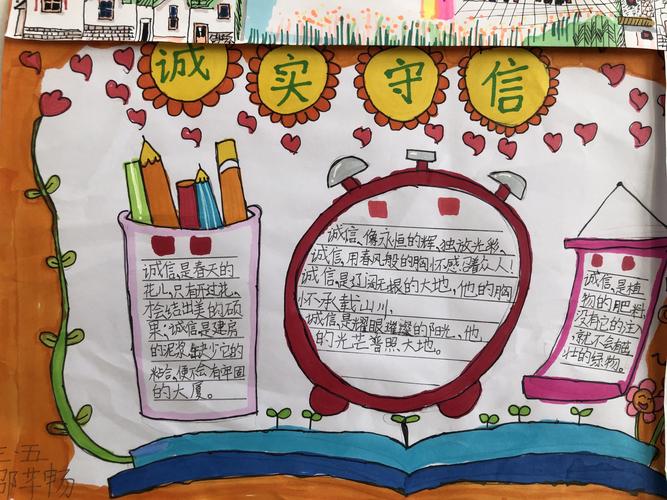 诚实守信
诚信,是春天的
花儿,只有开过花,
才会结出美的硕
果;诚信是建房
的泥浆,缺少它的
粘合,便不会有牢固
的大厦。
诚信,像永恒的辉,独放光彩,
诚信,用春风般的胸怀感召着众人!
诚信,是辽阔无垠的大地,他的胸
怀承载山川,
诚信,是耀眼璀璨的阳光,他
的光芒普照大地。
诚信,是植
物的肥料
没有它的注入
,就不会有茁
壮的绿物。
三.五